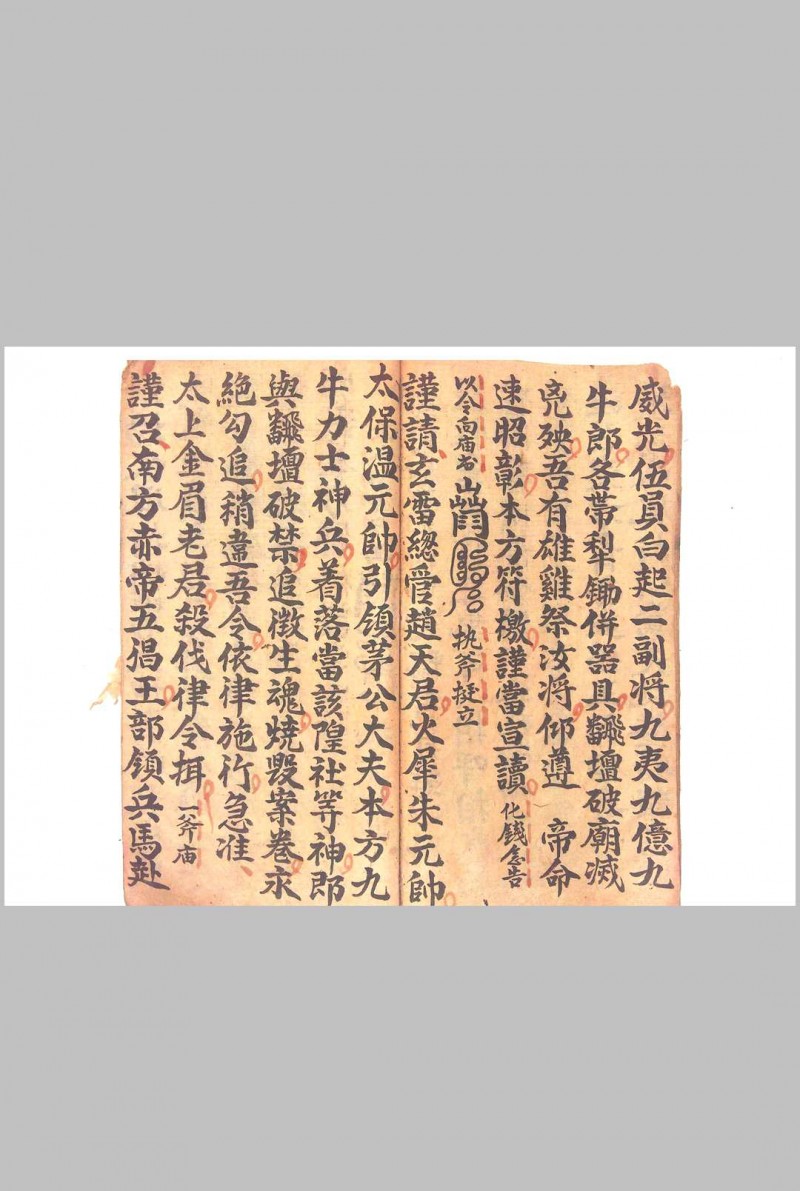 威光伍員白起二副将九夷九億九
牛郎各帶犁鋤併器具飜壇破廟滅
兇殃吾有雄雞祭汝将仰遵 帝命
速昭彰本方符檄謹當宣讀 化錢念告
以令向庙书 执斧挺立
謹請玄雷總管趙天君火犀朱元帥
太保温元帥引領茅公大夫本方九
牛力士神兵着落當該隍社等神即
與飜壇破禁追徵生魂燒毀案卷永
絶勾追稍違吾令依律施行急准
太上金眉老君殺伐律令揖 一斧庙
謹召南方赤帝五猖王部領兵馬赴